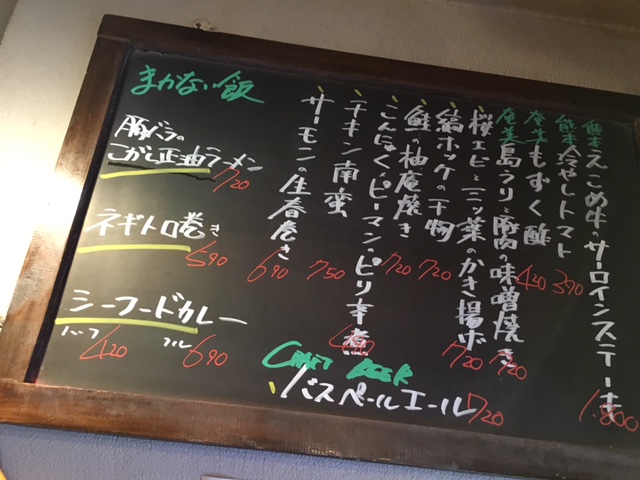 熊本えこめ牛のサーロインステーキ
1.800
熊本冷やしトマト
390
奄美もずく酢
420
奄美島ラリと豚肉の味噌焼き
720
桜エビと三ッ葉のかき揚ボ
720
縞ホッケの干物
720
鮭の柚庵焼き
720
こんにゃくピーマンのピリ辛煮
チキン南蛮
750
サーモンの生春巻き
690
まかない飯
豚バラの
こがし正油ラーメン
720
ネギトロ巻き
590
シーフードカレー
ハーフ 420
フル 690
CRAFT BEER
バスペールエール 720